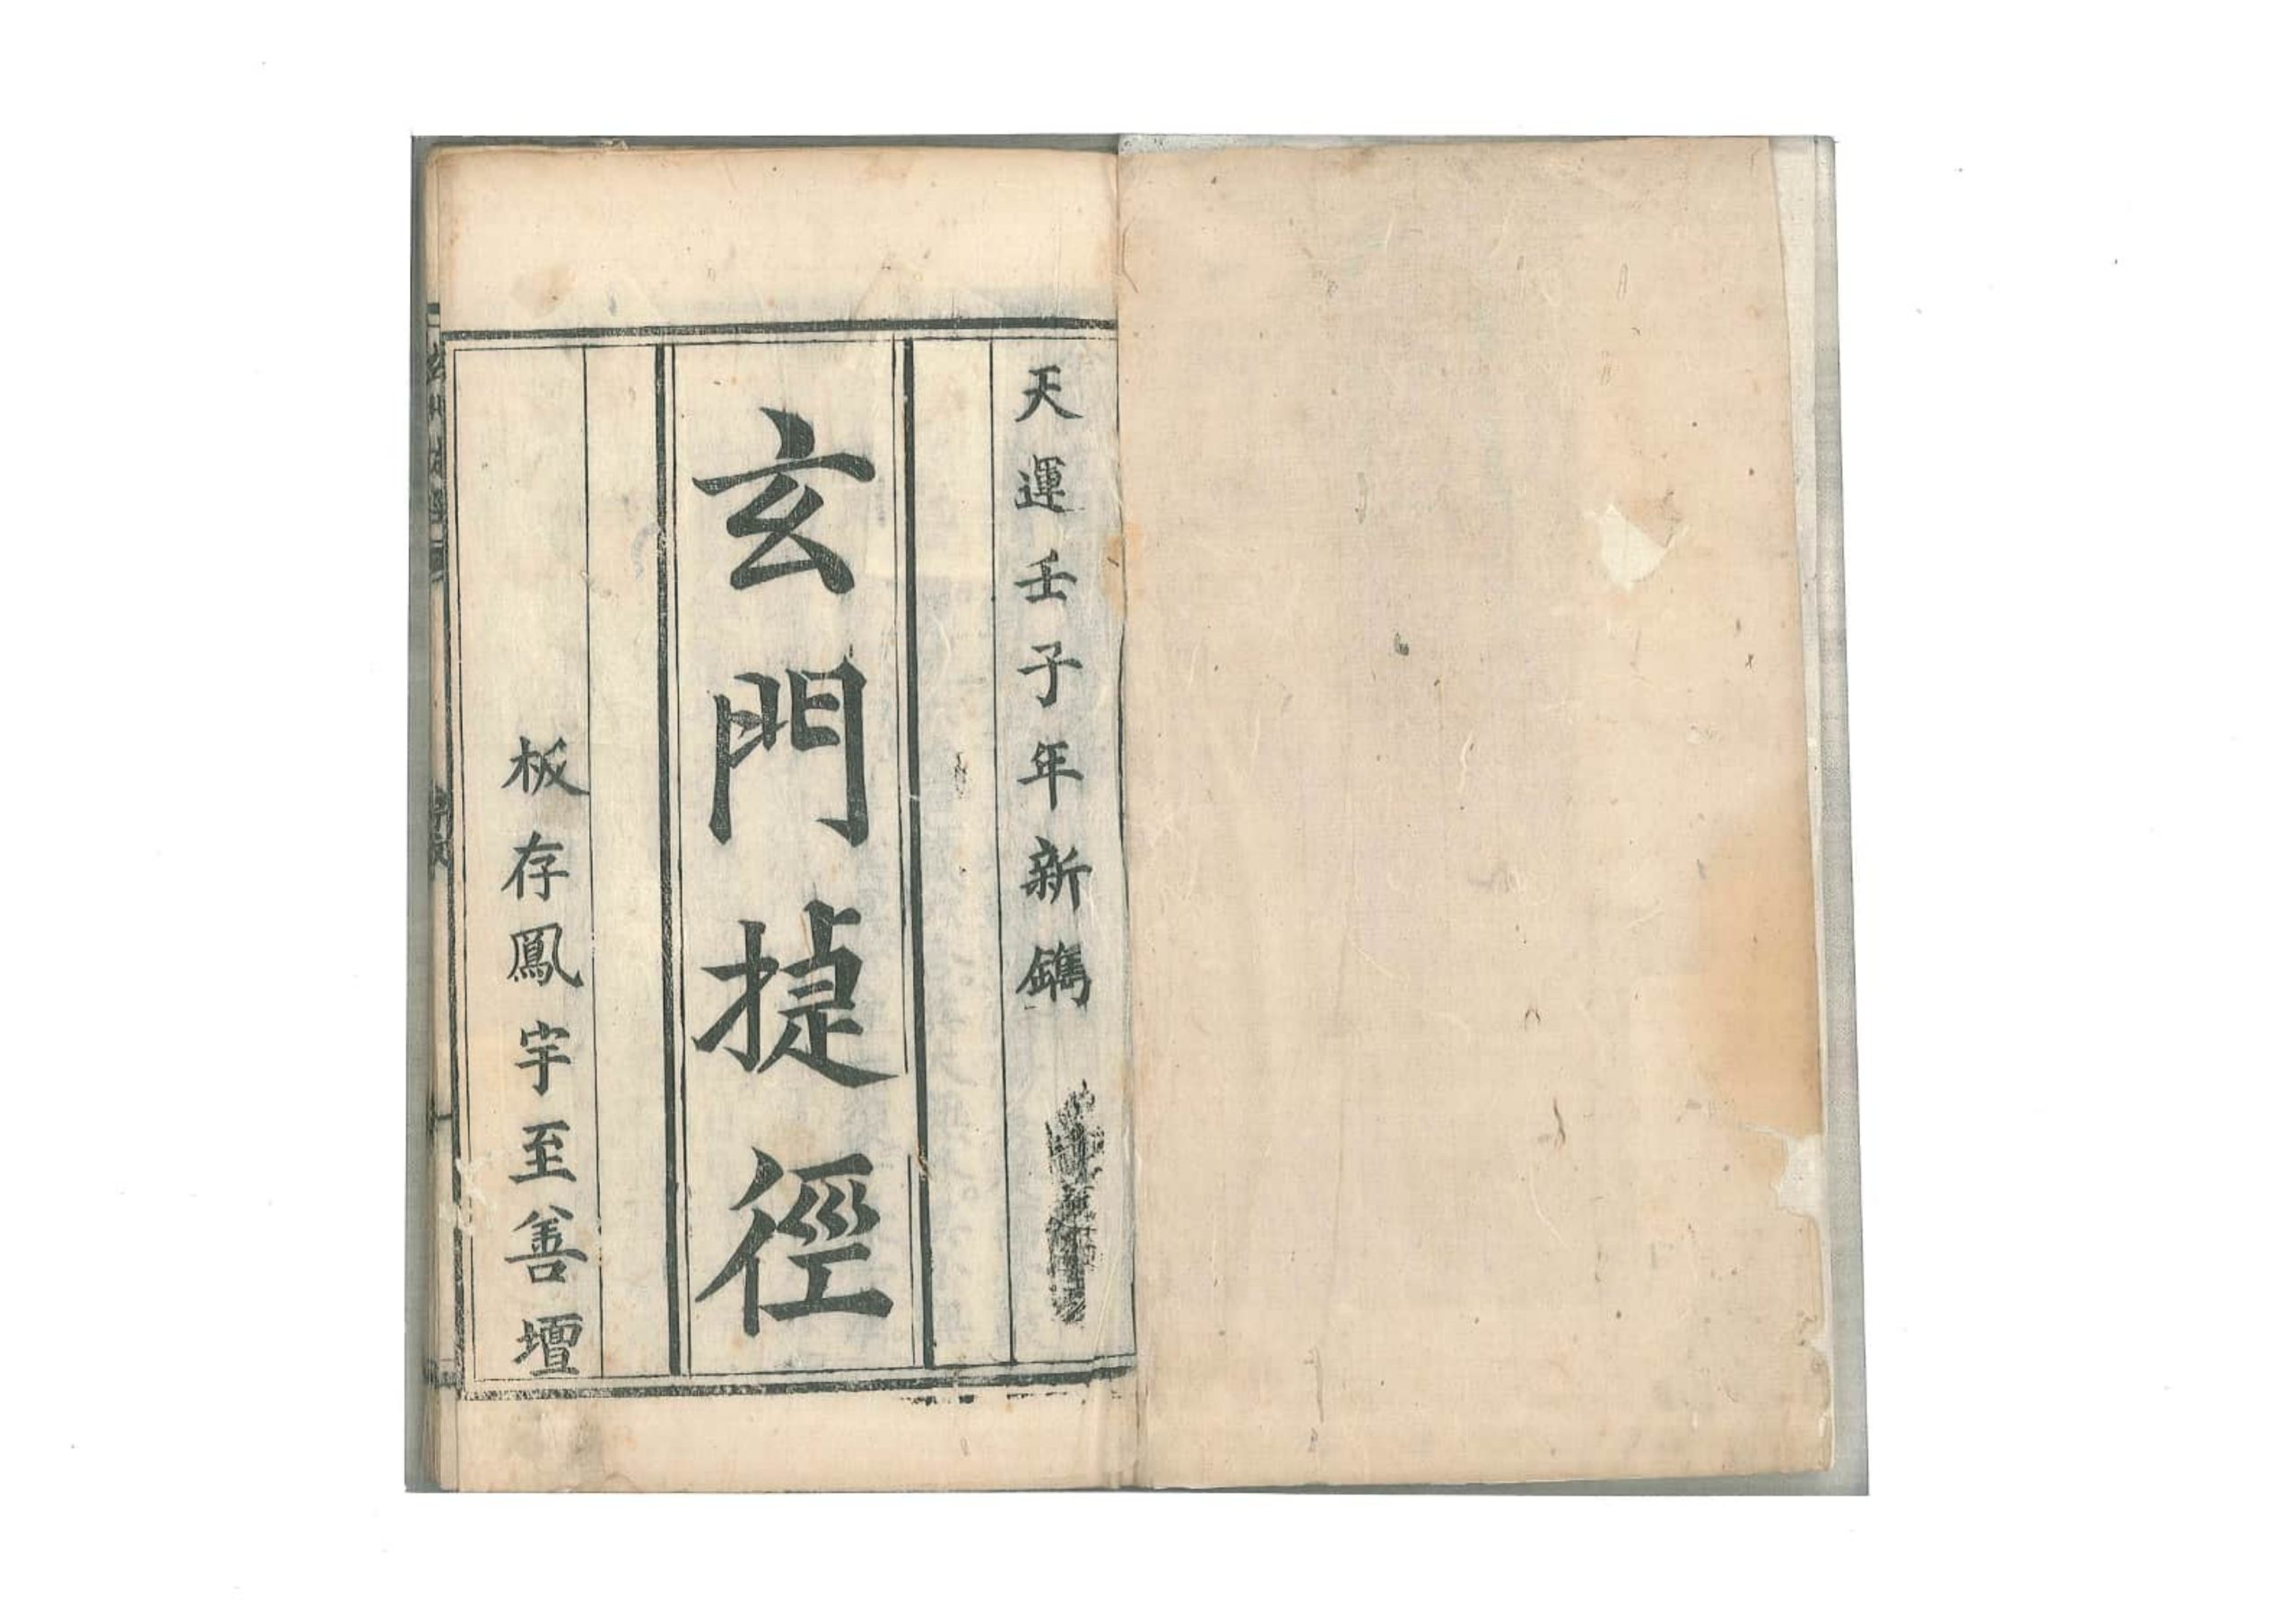 天運壬子年新鐫
玄門捷徑
板存鳳宇至善壇